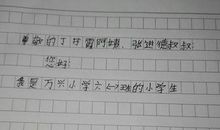 尊敬的丁祥雷阿姨、张进德叔叔
您好:
我是万兴小学六(7)班的小学生